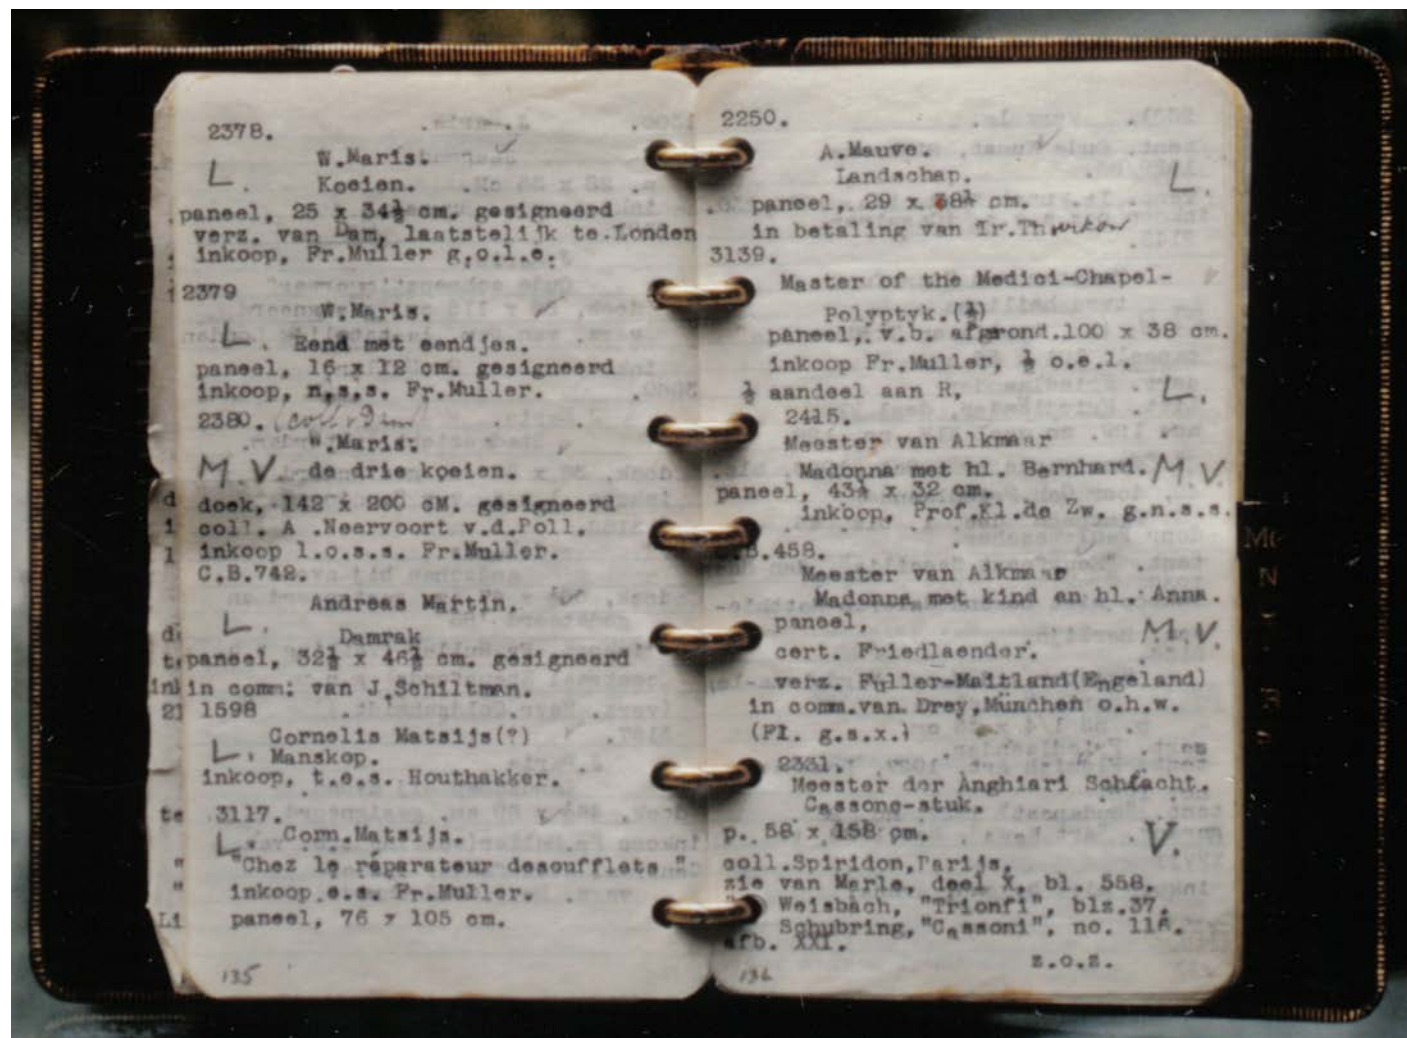 2378.
W.Maris.
L. Koeien.
paneel, 25 x 34½ cm. gesigneerd
verz. van Dam, laatstelijk te Londen
inkoop, Fr.Muller g.o.l.e.
2379
W.Maris.
L. Eend met eendjes.
paneel, 16 x 12 cm. gesigneerd
inkoop, n.s.s. Fr.Muller.
2380.
".Maris.
M.V. de drie koeien.
doek, 142 x 200 cM. gesigneerd
coll. A .Neervoort v.d.Poll.
inkoop l.o.s.s. Fr.Muller.
C.B.742.
Andreas Martin.
L. Damrak
paneel, 32½ x 46½ cm. gesigneerd
in comm; van J.Schiltman.
1598
Cornelis Matsijs(?)
L. Manskop.
inkoop, t.e.s. Houthakker.
3117.
Corn.Matsijs.
L. "Chez le réparateur desoufflets "
inkoop e.s. Fr.Muller.
paneel, 76 x 105 cm.
135
2250.
A.Mauve.
Landschap. L.
paneel, 29 x 38½ cm.
in betaling van Ir.Th
3139.
Master of the Medici-Chapel-
Polyptyk.(½)
paneel, v.b. afgrond.100 x 38 cm.
inkoop Fr.Muller, ½ o.e.l.
½ aandeel aan R, L.
2415.
Meester van Alkmaar
Madonna met hl. Bernhard. M.V.
paneel, 43½ x 32 cm.
inkoop, Prof.Kl.de Zw. g.n.s.s.
.B.458.
Meester van Alkmaar
Madonna met kind en hl. Anna.
paneel, M.V.
cert. Friedlaender.
verz. Fuller-Maitland(Engeland)
in comm.van Drey,München o.h.w.
(Fl. g.s.x.)
2331.
Meester der Anghiari Schlacht.
Cassone-stuk.
p. 58 x 158 cm. V.
coll.Spiridon,Parijs,
zie van Marle, deel X, bl. 558.
" Weisbach, "Trionfi", blz.37.
Schubring,"Cassoni", no. 116.
afb. XXI.
z.o.z.
136